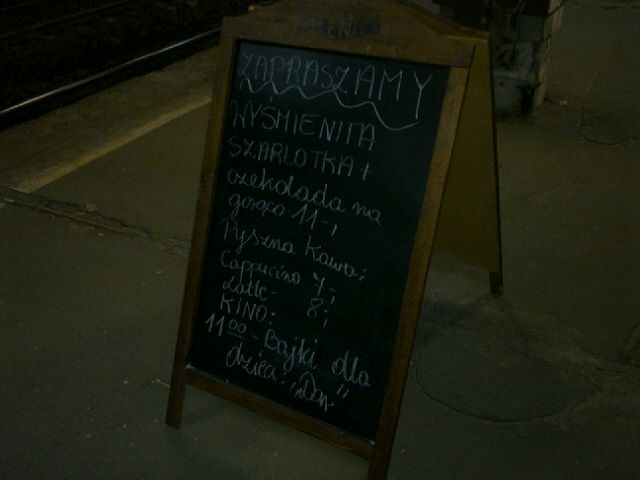 ZAPRASZAMY
WYŚMIENITA
SZARLOTKA +
czekolada na
gorąco 11,-
Pyszna kawa:
Cappucino 7,-
Latte - 8,-
KINO:
11:00 - Bajki dla
dzieci: